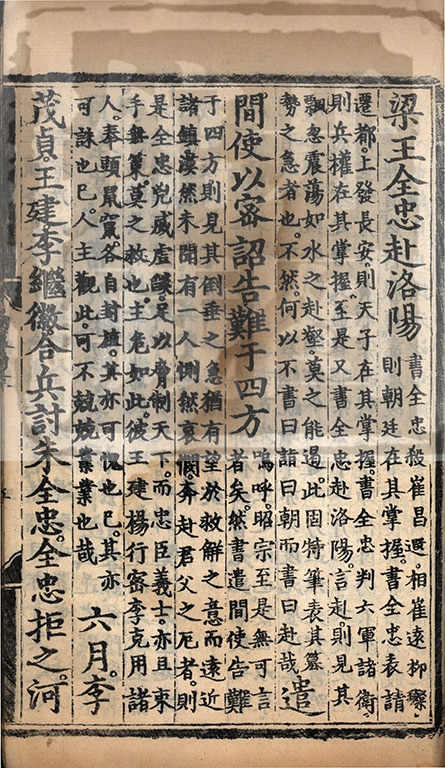 梁王全忠赴洛陽
書全忠殺崔昌遐相崔遠柳璨
則朝廷在其掌握書全忠表請
遷都上發長安則天子在其掌握書全忠判六軍諸衛
則兵權在其掌握至是又書全忠赴洛陽言赴則見其
飄忽震蕩如水之赴壑莫之能遏此固特筆表其簒
勢之急者也不然何以不書曰詣曰朝而書曰赴哉
遣
間使以宻詔告難于四方
嗚呼昭宗至是無可言
者矣然書遣間使告難
于四方則見其倒垂之急猶有望於救解之意而遠近
諸鎮漠然未聞有一人惻然哀憫奔赴君父之死者則
是全忠兇威虐燄足以脅制天下而忠臣義士亦且束
手無策莫之救也主危如此彼王建楊行密李克用諸
人奉頭鼠竄各自封殖其亦可愧也已其亦
可誅也已人主觀此可不兢兢業業也哉
六月李
茂貞王建李繼徽合兵討朱全忠全忠拒之河